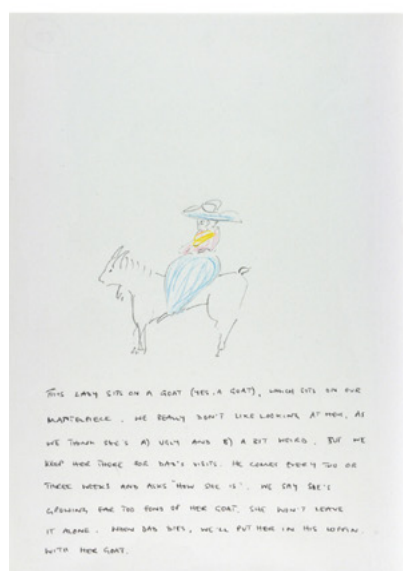 THIS LADY SITS ON A GOAT (YES, A GOAT), WHICH SITS ON OUR
MANTELPIECE. WE REALLY DON'T LIKE LOOKING AT HER, AS
WE THINK SHE'S A) UGLY AND B) A BIT WEIRD. BUT WE
KEEP HER THERE FOR DAD'S VISITS. HE COMES EVERY TWO OR
THREE WEEKS AND ASKS "HOW SHE IS". WE SAY SHE'S
GROWING FAR TOO FOND OF HER GOAT. SHE WON'T LEAVE
IT ALONE. WHEN DAD DIES, WE'LL PUT HER IN HIS COFFIN.
WITH HER GOAT.